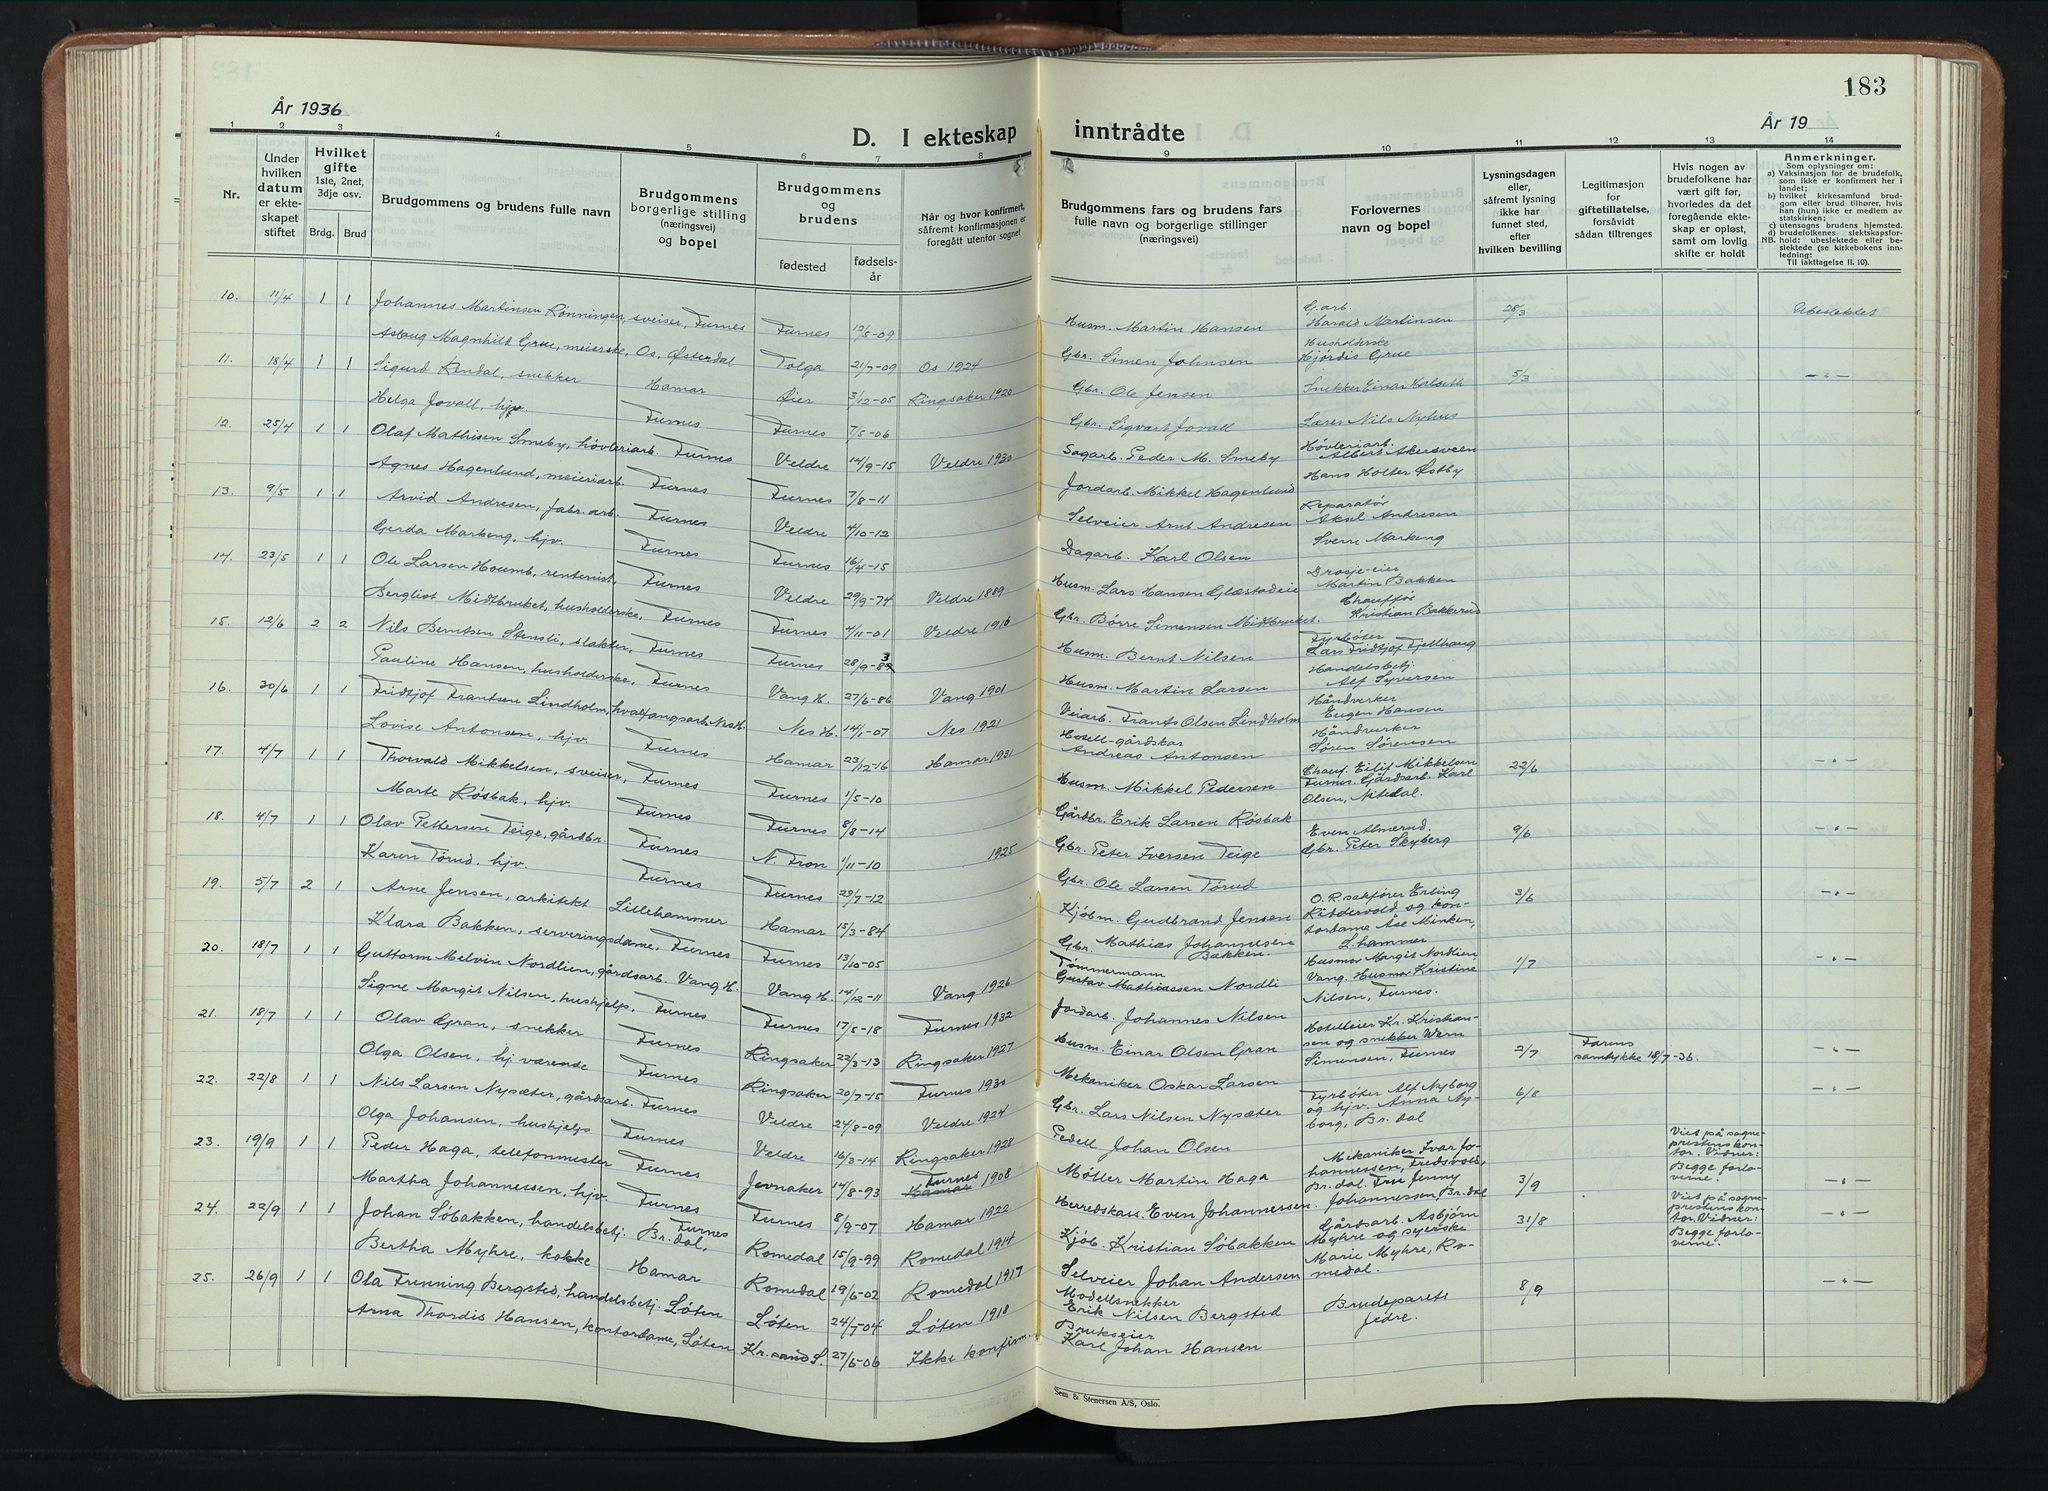 183
År 1936
År 19
D. I ekteskap inntrådte
1 2 3 4 5 6 7 8 9 10 11 12 13 14
Nr.
Under hvilken datum er ekteskapet stiftet
Hvilket gifte 1ste, 2net, 3dje osv.
Brdg. Brud
Brudgommens og brudens fulle navn
Brudgommens borgerlige stilling (næringsvei) og bopel
Brudgommens og brudens
fødested
fødselsår
Når og hvor konfirmert, såfremt konfirmasjonen er foregått utenfor sognet
Brudgommens fars og brudens fars fulle navn og borgerlige stillinger (næringsvei)
Forlovernes navn og bopel
Lysningsdagen eller, såfremt lysning ikke har funnet sted, efter hvilken bevilling
Legitimasjon for giftetillatelse, forsåvidt sådan tiltrenges
Hvis nogen av brudefolkene har vært gift før, hvorledes da det foregående ekteskap er opløst, samt om lovlig skifte er holdt
Anmerkninger.
Som oplysninger om:
a) Vaksinasjon for de brudefolk, som ikke er konfirmert her i landet;
b) hvilket kirkesamfund brudgom eller brud tilhører, hvis han (hun) ikke er medlem av statskirken;
c) utensogns brudens hjemsted.
d) brudefolkenes slektskapsforhold: ubeslektede eller beslektede (se kirkebokens innledning:
NB. Til iakttagelse II. 10).
10. 11/4 1 1 Johannes Martinsen Rønningen, sveiser, Furnes Furnes 12/5-09 Husm. Martin Hansen G.arb. Harald Martinsen 28/3 Ubeslektet
Aslaug Magnhild Grue, meierske, Os, Østerdal Tolga 21/7-09 Os 1924 Gbr. Simen Johnsen Husholderske Hjørdis Grue
11. 18/4 1 1 Sigurd Rindal, snekker Hamar Øier 3/12-05 Ringsaker 1920 Gbr. Ole Jensen Snekker Einar Kalseth 5/3 -"-
Helga Jovall, hjv. Furnes Furnes 7/5-06 Gbr. Sigvart Jovall Lærer Nils Nyhus
12. 25/4 1 1 Olaf Mathisen Smeby, høvleriarb. Furnes Veldre 14/9-15 Veldre 1930 Sagarb. Peder M. Smeby Høvleriarb. Albert Akersveen
Agnes Hagenlund, meieriarb. Furnes Furnes 7/8-11 Jordarb. Mikkel Hagenlund Hans Holter Østby
13. 9/5 1 1 Arvid Andresen, fabr.arb. Furnes Veldre 4/10-12 Selveier Arnt Andresen Reparatør Aksel Andresen
Gerda Markeng, hjv. Furnes Furnes 16/4-15 Dagarb. Karl Olsen Sverre Markeng
14. 23/5 1 1 Ole Larsen Houmb, rentenist, Furnes Veldre 29/9-74 Veldre 1889 Husm. Lars Hansen Glæstadeie Drosje-eier Martin Bakken
Bergliot Midtbruket, husholderske, Furnes Furnes 4/11-01 Veldre 1916 Gbr. Børre Simensen Midtbruket. Chauffør Kristian Bakkerud
15. 12/6 2 2 Nils Berntsen Stensli, slakter, Furnes Furnes 28/9-83 Husm. Bernt Nilsen Fyrbøter Lars Fridtjof Fjellhaug
Pauline Hansen, husholderske, Furnes Vang H. 27/6-86 Vang 1901 Husm. Martin Larsen Handelsbetj. Alf Syversen
16. 30/6 1 1 Fridtjof Frantsen Lindholm, hvalfangsarb. Nes H. Nes H. 14/1-07 Nes 1921 Veiarb. Frants Olsen Lindholm Håndverker Eugen Hansen
Lovise Antonsen, hjv. Furnes Hamar 23/12-16 Hamar 1931 Hotell-gårdskar Andreas Antonsen Håndverker Søren Sørensen
17. 4/7 1 1 Thorvald Mikkelsen, sveiser, Furnes Furnes 1/5-10 Husm. Mikkel Pedersen Chauf. Eilif Mikkelsen Furnes. Gårdsarb. Karl Olsen, Nitedal. 22/6 -"-
Marte Røsbak, hjv. Furnes Furnes 8/8-14 Gårdbr. Erik Larsen Røsbak
18. 4/7 1 1 Olav Pettersen Teige, gårdbr. Furnes N. Fron 1/11-10 1925 Gbr. Peter Iversen Teige Even Almerud. Gbr. Peter Skyberg 9/6 -"-
Karen Tørud, hjv. Furnes Furnes 29/7-12 Gbr. Ole Larsen Tørud
19. 5/7 2 1 Arne Jensen, arkitekt Lillehammer Hamar 15/3-84 Kjøbm. Gudbrand Jensen O.R.sakfører Erling Riddervold og kontordame Åse Minken, L.hammer 3/6 -"-
Klara Bakken, serveringsdame, Furnes Furnes 13/10-05 Gbr. Mathias Johannesen Bakken.
20. 18/7 1 1 Guttorm Melvin Nordlien, gårdsarb. Vang H. Vang H. 14/12-11 Vang 1926 Tømmermann Gustav Mathiassen Nordli Husmor Margit Nordlien Vang. Husmor Kristine Nilsen, Furnes. 1/7 -"-
Signe Margit Nilsen, hushjelp, Furnes Furnes 17/5-18 Furnes 1932 Jordarb. Johannes Nilsen
21. 18/7 1 1 Olav Gran, snekker Furnes Ringsaker 22/3-13 Ringsaker 1927 Husm. Einar Olsen Gran Hotelleier Kr. Kristiansen og snekker Wern Simensen, Furnes 2/7 Farens samtykke 18/7-36. -"-
Olga Olsen, hj. værende Furnes Ringsaker 20/7-15 Furnes 1930 Mekaniker Oskar Larsen
22. 22/8 1 1 Nils Larsen Nysæter, gårdsarb. Furnes Veldre 24/8-09 Veldre 1924 Gbr. Lars Nilsen Nysæter Fyrbøter Alf Nyborg og hjv. Anna Nyborg, Br.dal 6/8 -"-
Olga Johansen, hushjelp Furnes Veldre 16/3-14 Ringsaker 1928 Pedell Johan Olsen
23. 19/9 1 1 Peder Haga, telefonmester Furnes Jevnaker 14/8-93 Furnes Hamar 1908 Møller Martin Haga Mekaniker Ivar Johannessen, Fredsvold, Br.dal. Fru Jenny Johannessen, Br.dal 3/9 Viet på sogneprestens kontor. Vidner: Begge forloverne. -"-
Martha Johannessen, hjv. Furnes Furnes 8/9-07 Hamar 1922 Herredskass. Even Johannessen.
24. 22/9 1 1 Johan Søbakken, handelsbetj. Br.dal, Furnes Romedal 15/9-99 Romedal 1914 Kjøb. Kristian Søbakken Gårdsarb. Asbjørn Myhre og syerske Marie Myhre, Romedal. 31/8 Viet på sogneprestens kontor. Vidner: Begge forloverne. -"-
Bertha Myhre, kokke Hamar Romedal 19/6-02 Romedal 1917 Selveier Johan Andersen
25. 26/9 1 1 Ola Frenning Bergsted, handelsbetj. Løten Løten 24/7-04 Løten 1918 Modellsnekker Erik Nilsen Bergsted Brudeparets fedre. 8/9 -"-
Arna Thordis Hansen, kontordame, Løten Kr.sand S. 27/5-06 Ikke konfirm. Brukseier Karl Johan Hansen
Sem & Stenersen A/S, Oslo.